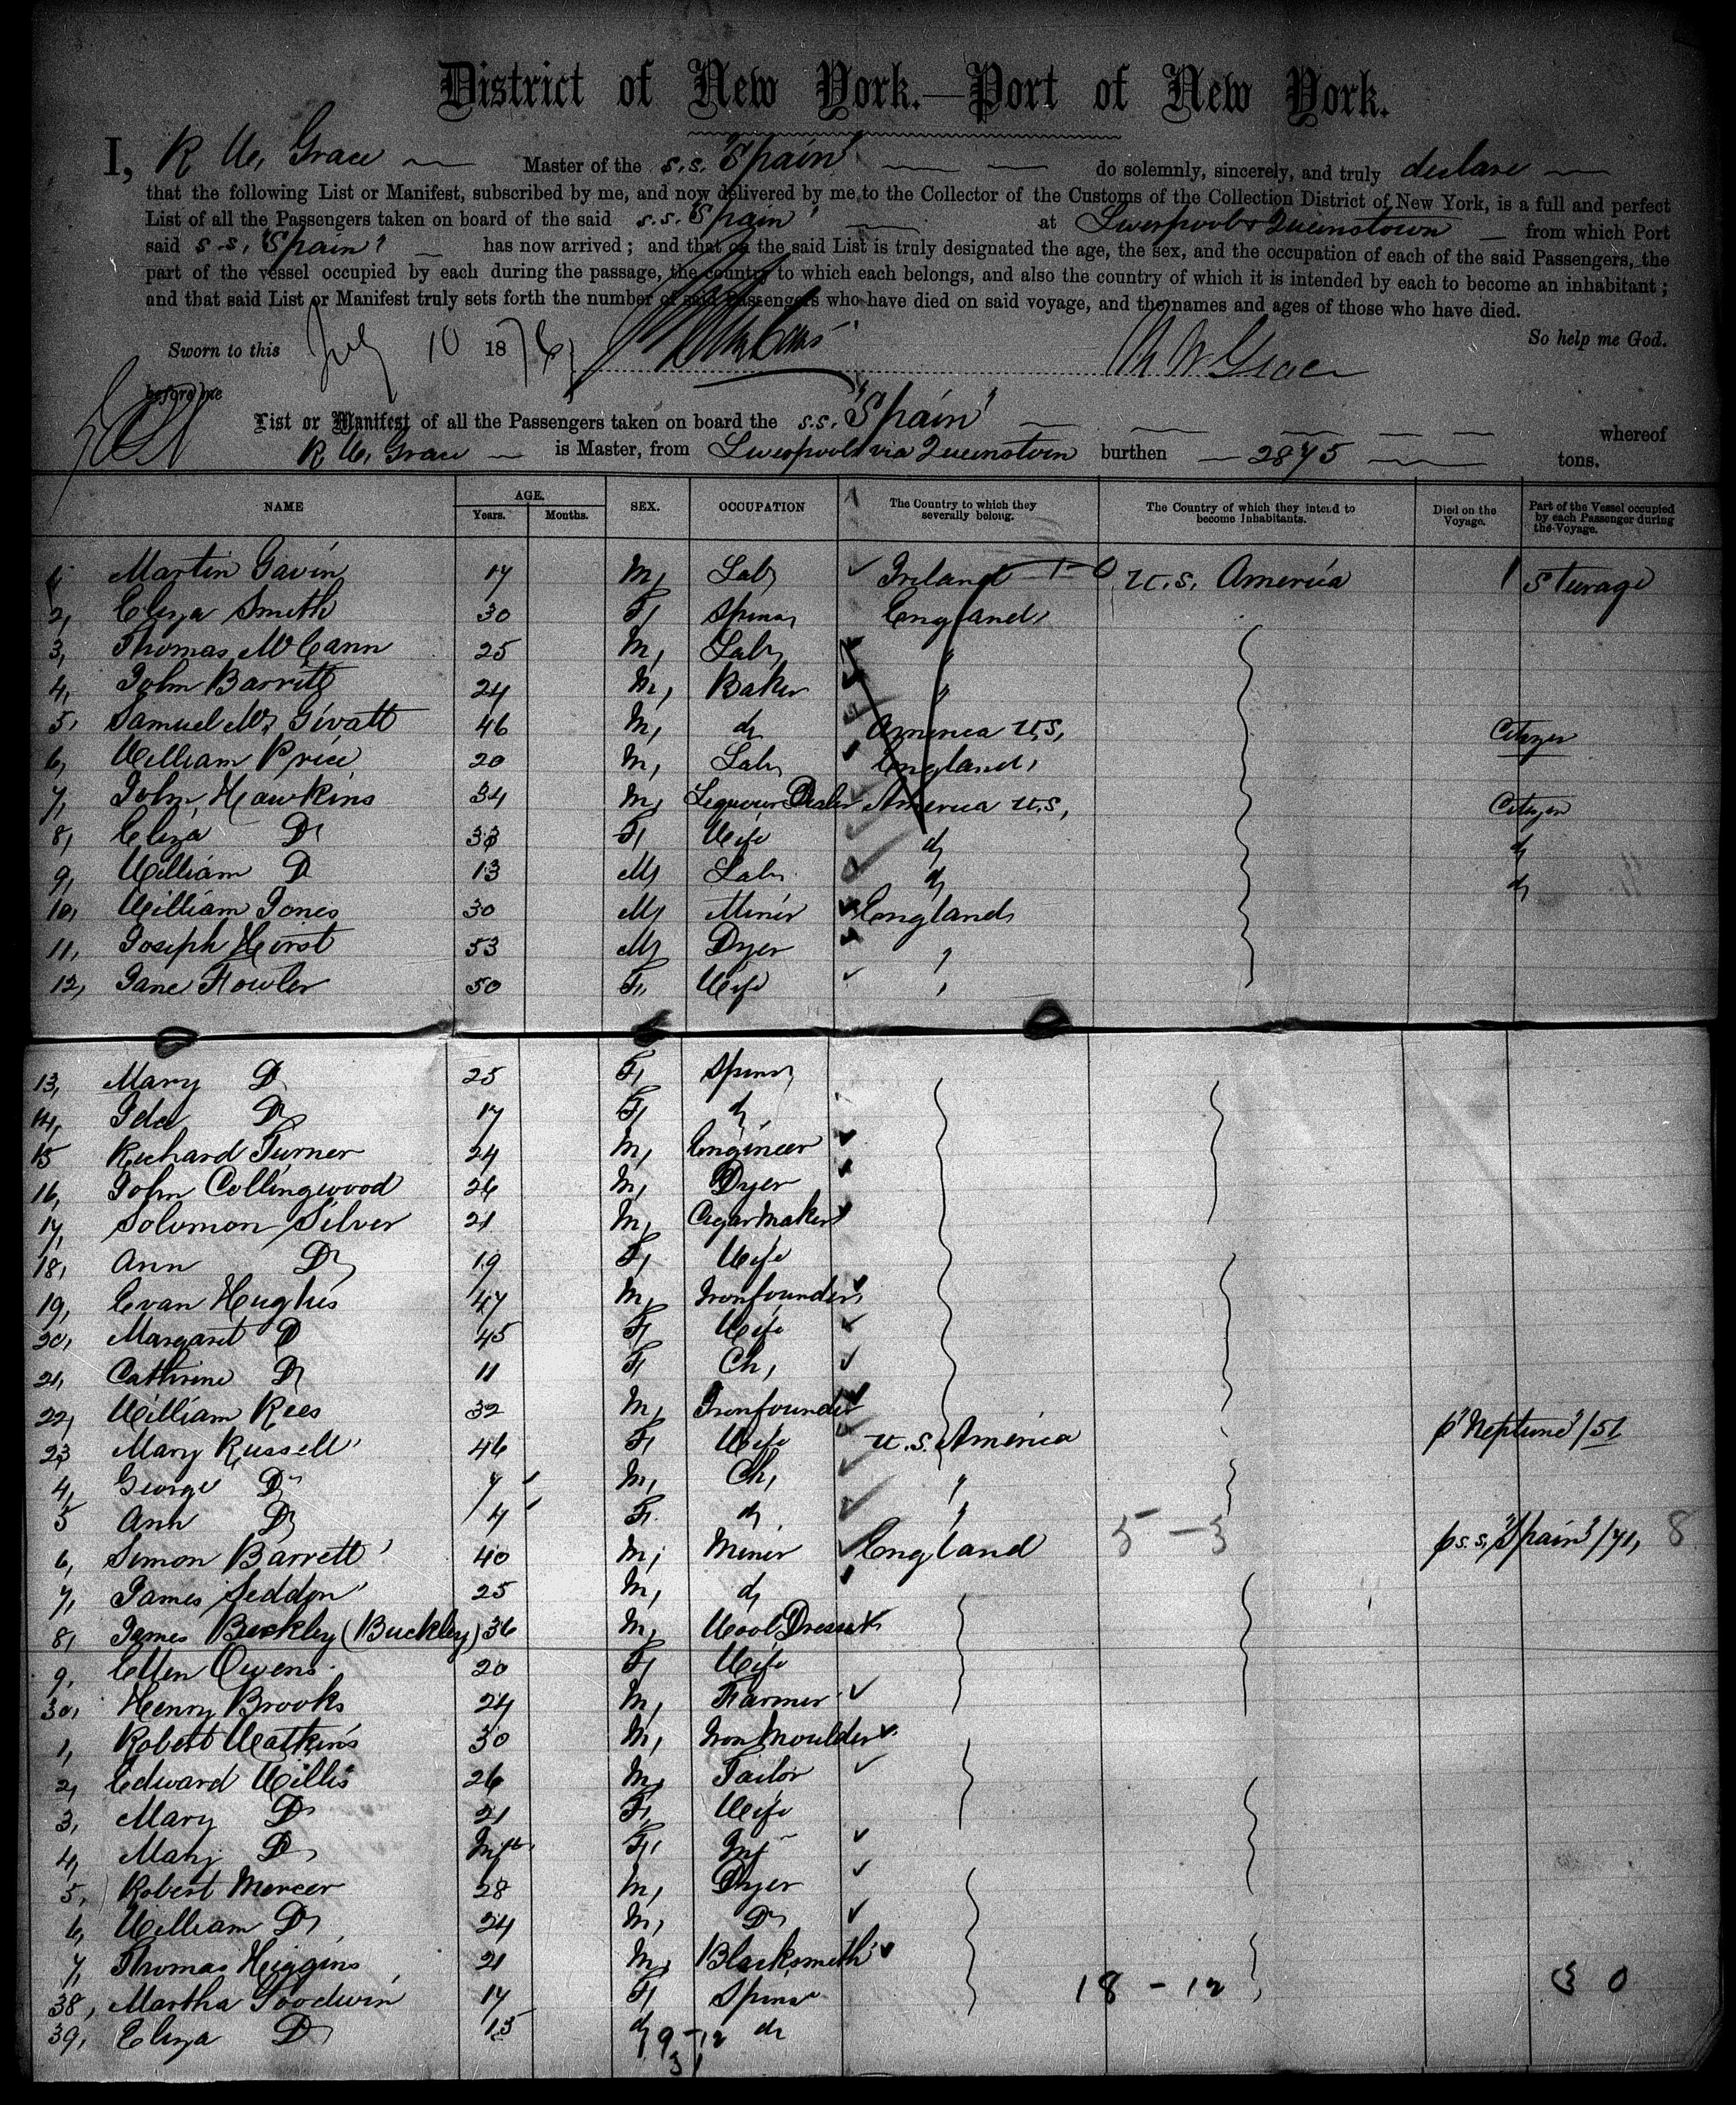 District of New York.—Port of New York.
I, R W. Grace Master of the s.s. "Spain" do solemnly, sincerely, and truly declare
that the following List or Manifest, subscribed by me, and now delivered by me to the Collector of the Customs of the Collection District of New York, is a full and perfect
List of all the Passengers taken on board of the said s.s. "Spain" at Liverpool & Queenstown from which Port
said s.s. "Spain" has now arrived; and that on the said List is truly designated the age, the sex, and the occupation of each of the said Passengers, the
part of the vessel occupied by each during the passage, the country to which each belongs, and also the country of which it is intended by each to become an inhabitant;
and that said List or Manifest truly sets forth the number of said Passengers who have died on said voyage, and the names and ages of those who have died.
So help me God.
Sworn to this July 10 1876, R W Grace
before me
List or Manifest of all the Passengers taken on board the s.s. "Spain" whereof
R W. Grace is Master, from Liverpool via Queenstown burthen 2875 tons.
NAME AGE. Years. Months. SEX. OCCUPATION The Country to which they severally belong. The Country of which they intend to become Inhabitants. Died on the Voyage. Part of the Vessel occupied by each Passenger during the Voyage.
1, Martin Gavin 17 M, Lab, Ireland 1-0 U.S. America Steerage
2, Eliza Smith 30 F, Spins, England,
3, Thomas McCann 25 M, Lab, "
4, John Barritt 24 M, Baker "
5, Samuel 46 M, do America U.S, Citizen
6, William Price 20 M, Lab, England,
7, John Hawkins 34 M, Liquour Dealer America U.S, Citizen
8, Eliza Do 33 F, Wife do do
9, William Do 13 M, Lab, do do
10, William Jones 30 M, Miner England,
11, Joseph Hirst 53 M, Dyer "
12, Jane Fowler 50 F, Wife "
13, Mary Do 25 F, Spins,
14, Ida Do 17 F, do,
15 Richard Turner 24 M, Engineer
16, John Collingwood 26 M, Dyer
17, Solomon Silver 21 M, Cigar Maker
18, Ann Do 19 F, Wife
19, Evan Hughes 47 M, Ironfounder,
20, Margaret Do 45 F, Wife
21, Cathrine Do 11 F, Ch,
22, William Rees 32 M, Ironfounder
23 Mary Russell 46 F, Wife U.S. America p "Neptune"/51
4, George Do 7 M, Ch, "
5 Ann Do 4 F. do "
6, Simon Barrett 40 M, Miner England 5-3 p s.s, "Spain"/71, 8
7, James Seddon 25 M, do
8, James Buckley (Buckley) 36 M, Wool Dresser
9, Ellen Owens 20 F, Wife
30, Henry Brooks 24 M, Farmer
1, Robert Watkins 30 M, Iron Moulder
2, Edward Willis 26 M, Tailor
3, Mary Do 21 F, Wife
4, Mary Do F, Inf
5, Robert Mercer 28 M, Dyer
6, William Do 24 M, Do
7, Thomas Higgins 21 M, Blacksmith
38, Martha Goodwin 17 F, Spins 18 - 12 3 0
39, Eliza Do 15 do do
19-12
31